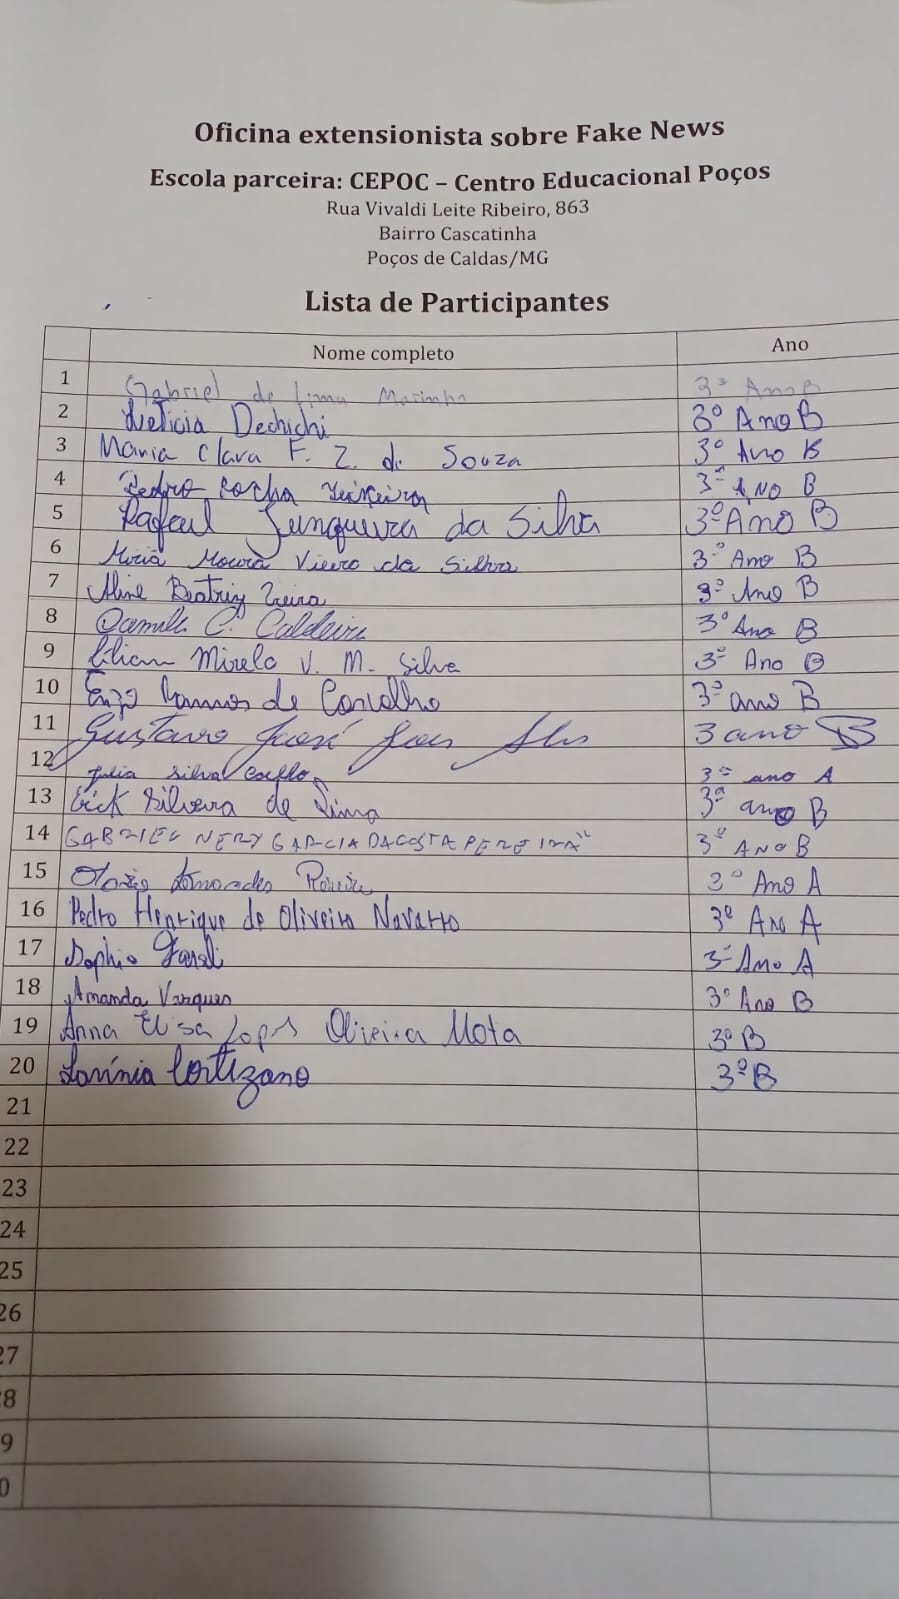 Oficina extensionista sobre Fake News
Escola parceira: CEPOC – Centro Educacional Poços
Rua Vivaldi Leite Ribeiro, 863
Bairro Cascatinha
Poços de Caldas/MG
Lista de Participantes
Nome completo Ano
1 Gabriel de Lima Marinho 3º Ano B
2 Leticia Dechichi 3º Ano B
3 Maria Clara F. Z. de Souza 3º Ano B
4 Pedro Rocha Teixeira 3º ANO B
5 Rafael Junqueira da Silva 3º Ano B
6 Maria Moura Vieira da Silva 3º Ano B
7 Aline Beatriz 3º Ano B
8 Camilla C. Caldeira 3º Ano B
9 Lilian Mirela V. M. Silva 3º Ano B
10 Enzo Ramos de Carvalho 3º ano B
11 Gustavo José 3 ano B
12 Julia Silva Coelho 3º ano A
13 Erick Silveira de Lima 3º ano B
14 GABRIEL NERY GARCIA DA COSTA PEREIRA 3º ANO B
15 3º Ano A
16 Pedro Henrique de Oliveira Navarro 3º AN A
17 Sophia 3º Ano A
18 Amanda Vargues 3º Ano B
19 Anna Elisa Lopes Oliveira Mota 3º B
20 Lavínia Cortizano 3º B
21
22
23
24
25
26
27
8
9
0